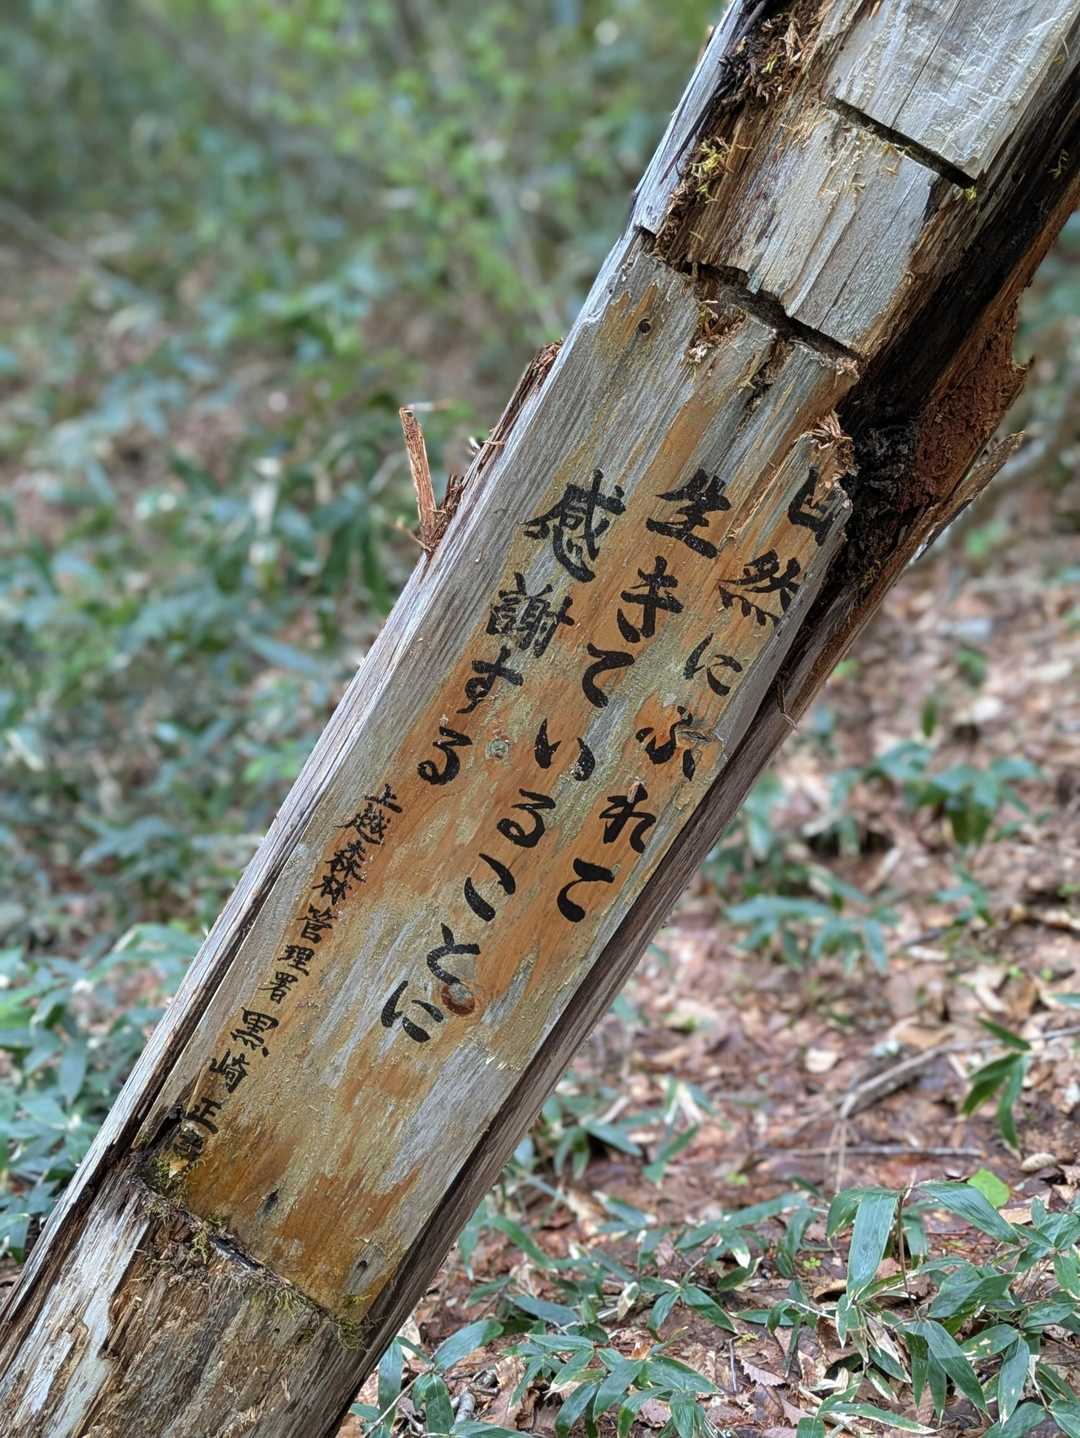 自然にふれて
生きていることに
感謝する
上越森林管理署 黒崎正